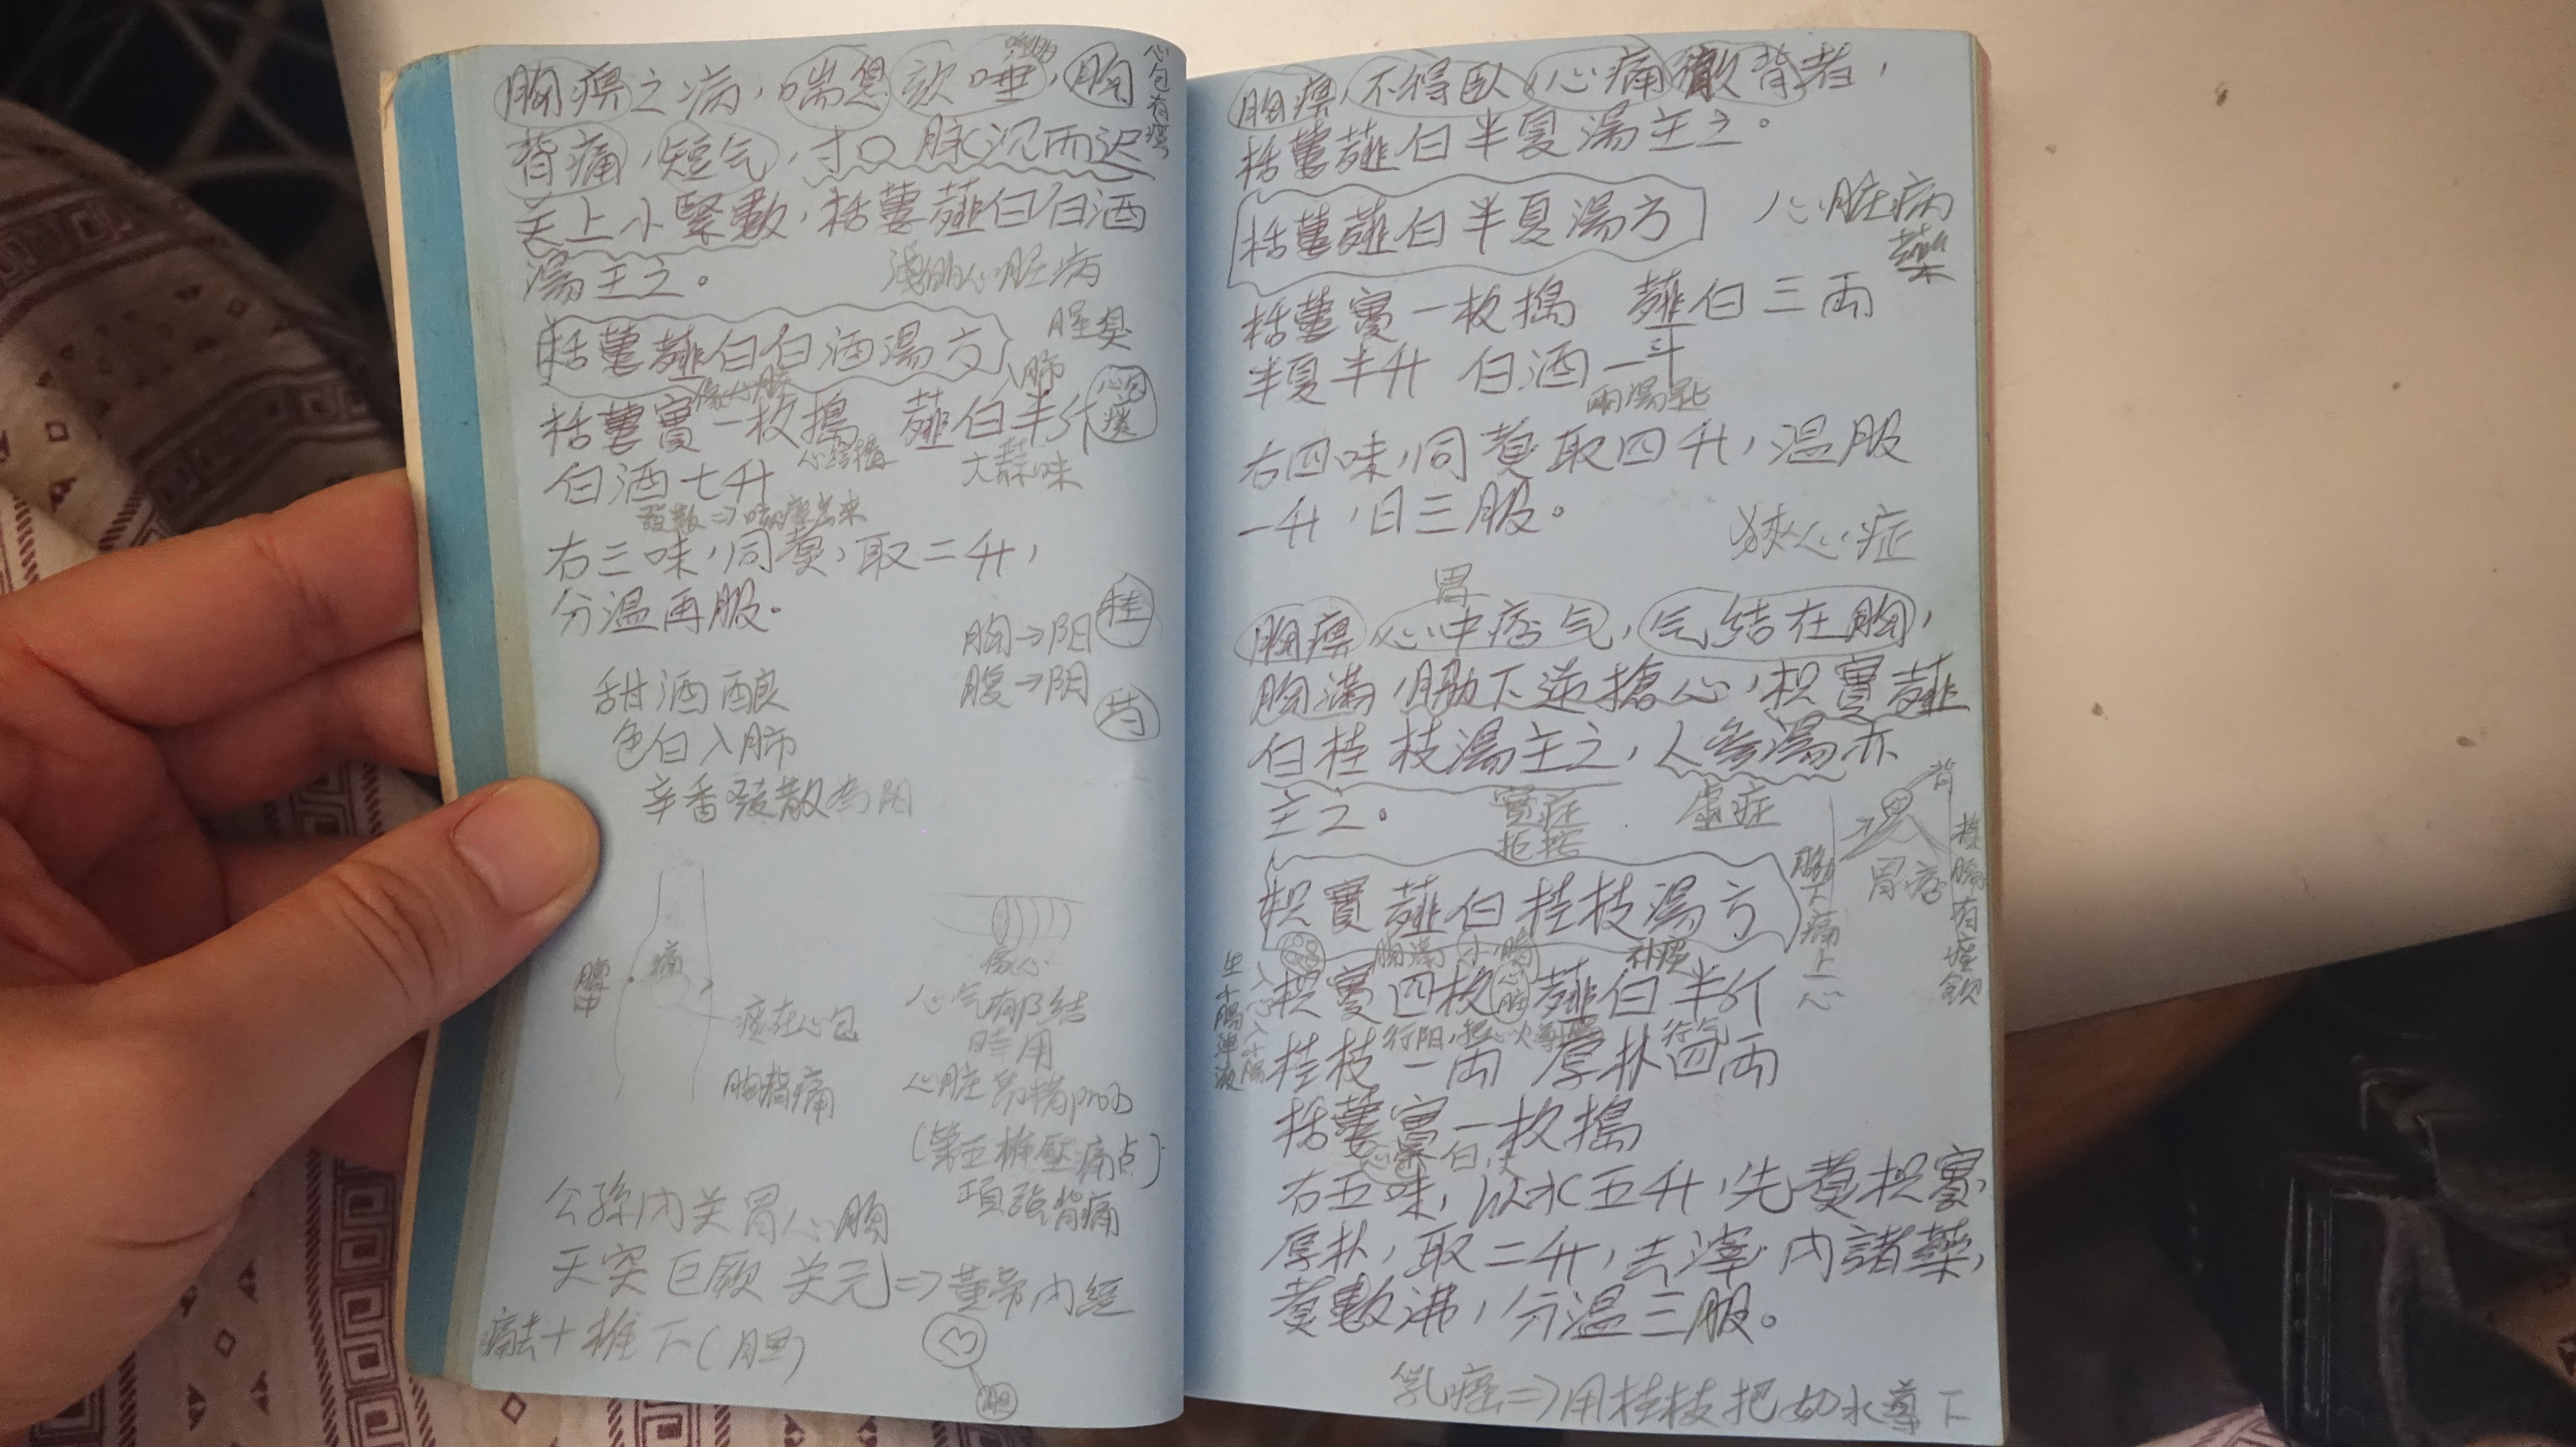 胸痹之病，喘息欬唾，胸
背痛，短气，寸口脉沉而迟
关上小緊數，栝蔞薤白白酒
湯主之。
心包有痰
心脏病
栝蔞薤白白酒湯方
腥臭
入肺
栝蔞實一枚搗 薤白半斤
心包
痰
白酒七升
大蒜味
發散⇒
右三味，同煮，取二升，
分温再服。
胸→阳 桂
腹→阴 芍
甜酒酿
色白入肺
辛香發散为阳
膻中
痛
痰在心包
胸背痛
像心
心气有郁结
時用
心脏
(第五椎壓痛点)
項强背痛
公孫内关胃心胸
天突 巨厥 关元⇒黄帝内经
十椎下(胆)
胆
胸痹，不得臥，心痛徹背者，
栝蔞薤白半夏湯主之。
栝蔞薤白半夏湯方
心脏病
藥
栝蔞實一枚搗 薤白三两
半夏半升 白酒一斗
兩湯匙
右四味，同煮取四升，温服
一升，日三服。
狭心症
胃
胸痹 心中痞气，气结在胸，
胸满，脇下逆搶心，枳實薤
白桂枝湯主之，人參湯亦
主之。
實症
虚症
背
胃痞
脇下痛上心
枳實薤白桂枝湯方
胸满
小腸
心脏
枳實四枚 薤白半斤
行阳，把心火導
行气
桂枝一两 厚朴四两
栝蔞實一枚搗
右五味，以水五升，先煮枳實
厚朴，取二升，去滓 内諸藥，
煮數沸，分温三服。
乳癌⇒用桂枝把奶水導下